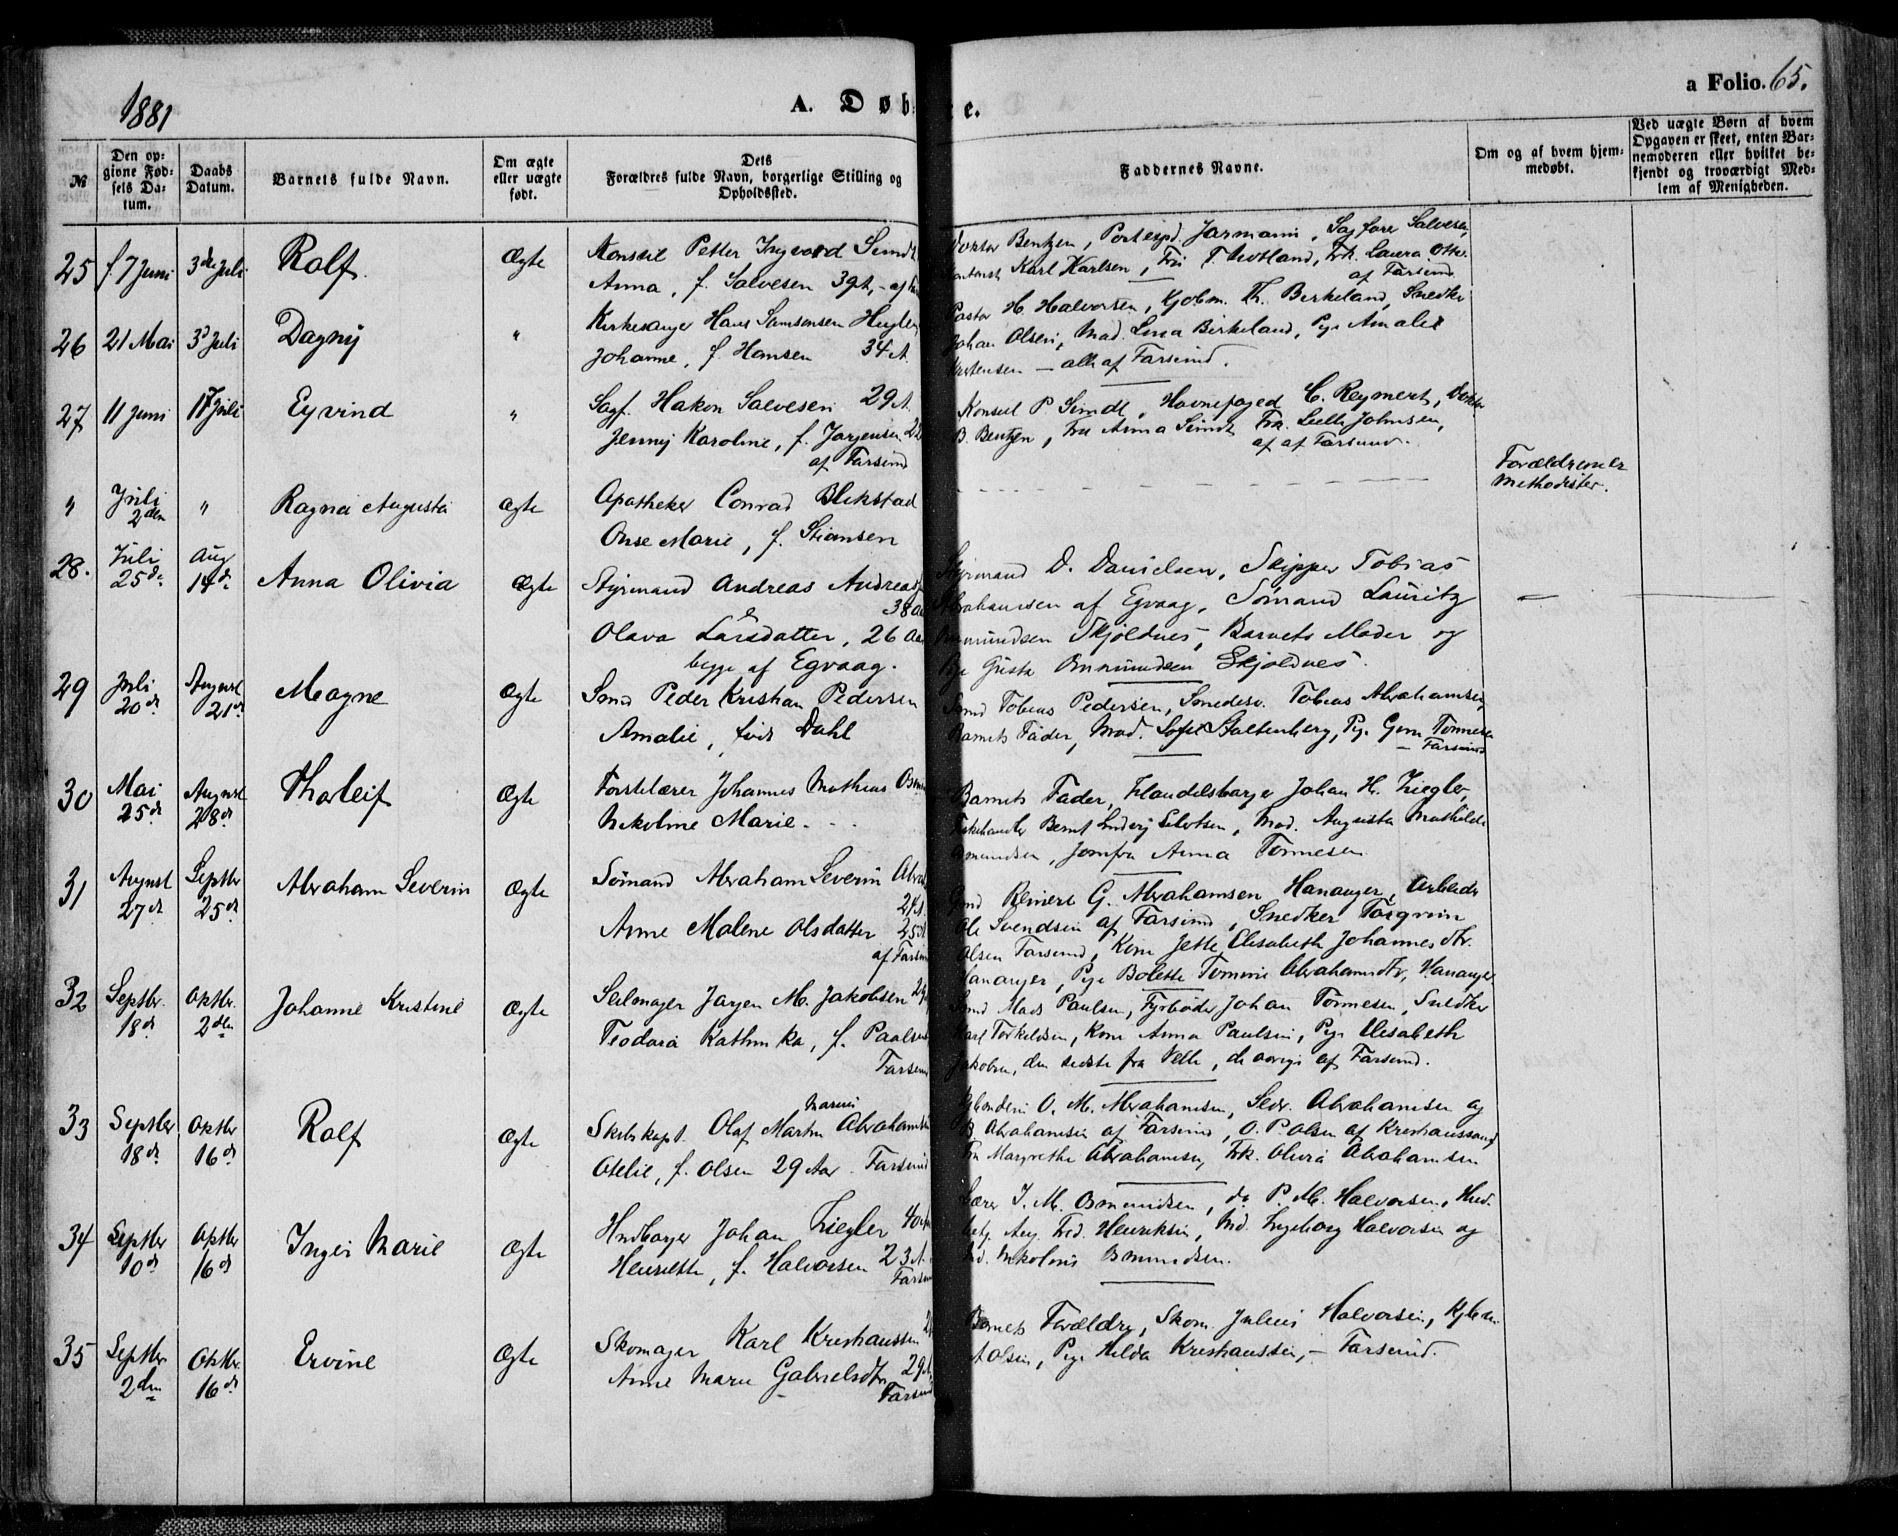 1881
A. Døb e.
a Folio. 65.
№
Den opgivne Fødsels Datum.
Daabs Datum.
Barnets fulde Navn.
Om ægte eller uægte født.
Dets Forældres fulde Navn, borgerlige Stilling og Opholdssted.
Faddernes Navne.
Om og af hvem hjemmedøbt.
Ved uægte Børn af hvem Opgaven er skeet, enten Barnemoderen eller hvilket bekjendt og troværdigt Medlem af Menigheden.
25 f. 7 Juni 3de Juli Rolf. Ægte Konsul Petter Ingvard Sundt
Anna, f. Salvesen 39A,
Doktor Bentzen, Jarmann, Sagfører Salvesen,
Karl Karlsen, Fru T. Frk. Laura
af Farsund
26 21 Mai 3d Juli Dagny " Kirkesanger Hans Samsonsen
Johanne, f. Hansen 34 A.
Pastor H. Halvorsen, Kjøbm. Th. Birkeland, Snedker
Johan Olsen, Mad. Lina Birkeland, Pige Amalie
Kristensen — alle af Farsund.
27 11 Juni 17 Juli Eyvind " Sagf. Hakon Salvesen 29 A.
Jenny Karoline, f. Jørgensen 22
af Farsund
Konsul P Sundt, Havnefoged C. Reymert, Doktor
B. Bentzen, Fru Anna Sundt, Frk. Johnsen,
af af Farsund.
" Juli 2den " Ragna Augusta ægte Apotheker Conrad Blikstad
Anse Marie, f. Stiansen
Forældrene er
Methodister.
28. Juli 25de Aug 14de Anna Olivia Ægte Styrmand Andreas Andreas
38 Aa
Olava Larsdatter, 26 Aa
begge af Egvaag.
Styrmand D. Danielsen, Skipper Tobias
Abrahamsen af Egvaag, Sømand Lauritz
Osmundsen Skjoldnes, Barnets Moder og
Pige Gusta Osmundsen Skjoldnes.
29 Juli 20de August 21de Magne Ægte Smed Peder Kristian Pedersen
Amalie, født Dahl
Smed Tobias Pedersen, Smedesv. Tobias Abrahamsen,
Barnets Fader, Mad. Sofie Stoltenberg, Pige Tønnesen
— Farsund
30 Mai 25de August 28de Thorleif Ægte Førstelærer Johannes Mathias Osmun
Nikoline Marie. . . .
Barnets Fader, Handelsborger Johan H. Ziegler,
Bernt Ludvig Mad. Augusta Mathilde
Osmundsen, Jomfru Anna Tønnesen
31 August 27de Septbr 25de Abraham Severin Ægte Sømand Abraham Severin Abrah
24A.
Anne Malene Olsdatter 25A
af Farsun
Gmd Reinert G. Abrahamsen Hananger, Arbeider
Ole Svendsen af Farsund, Snedker Torgrim
Olsen Farsund, Kone Jette Elisabeth Johannesdtr.
Hananger, Pige Bolette Tomine Abrahamsdtr, Hananger
32 Septbr. 18de Oktbr. 2den Johanne Kristine Ægte Seilmager Jørgen M. Jakobsen 29
Teodora Kathinka, f. Paulsen
Farsun
Smed Mads Paulsen, Fyrbøder Johan Tønnesen, Snedker
Karl Torkeldsen, Kone Anna Paulsen, Pige Elisabeth
Jakobsen, den sidste fra Velle, de øvrige af Farsund.
33 Septbr 18de Oktbr 16de Rolf Ægte Skibskapt. Olaf Martin Marius Abrahamsen
Otelie, f. Olsen 29 Aar. Farsund
O. M. Abrahamsen, Sevr. Abrahamsen og
B Abrahamsen af Farsund, O. P. Olsen af Kristianssand
Fru Margrethe Abrahamsen, Frk. Olivia Abrahamsen
34 Septbr 10de Oktbr 16de Inger Marie Ægte Hndlborger Johan Ziegler 40
Henriette, f. Halvorsen 23 A.
Farsun
Lærer J. M. Osmundsen, do P. M. Halvorsen,
Aug. Fred. Henriksen, Md. Ingeborg Halvorsen og
Md. Nikoline Osmundsen.
35 Septbr. 2den Oktbr. 16de Ervine Ægte Skomager Karl Kristiansen
Anne Marie Gabrielsdtr 29A.
Farsund
Barnets Forældre, Skom. Julius Halvorsen,
A Olsen, Pige Hilda Kristiansen, — Farsund.